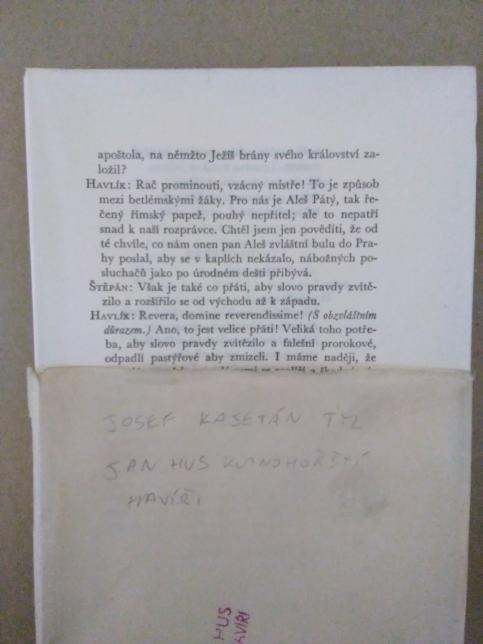 apoštola, na němžto Ježíš brány svého království za-
ložil?
HAVLÍK: Rač prominouti, vzácný mistře! To je způsob
mezi betlémskými žáky. Pro nás je Aleš Pátý, tak ře-
čený římský papež, pouhý nepřítel; ale to nepatří
snad k naší rozprávce. Chtěl jsem jen povědíti, že od
té chvíle, co nám onen pan Aleš zvláštní bulu do Pra-
hy poslal, aby se v kaplích nekázalo, nábožných po-
sluchačů jako po úrodném dešti přibývá.
ŠTĚPÁN: Však je také co přáti, aby slovo pravdy zvítě-
zilo a rozšířilo se od východu až k západu.
HAVLÍK: Revera, domine reverendissime! (S obzvláštním
důrazem.) Ano, to jest velice přáti! Veliká toho potře-
ba, aby slovo pravdy zvítězilo a falešní prorokové,
odpadlí pastýřové aby zmizeli. I máme naději, že
JOSEF KAJETÁN TYL
JAN HUS KUTNOHORŠTÍ
HAVÍŘI
HUS